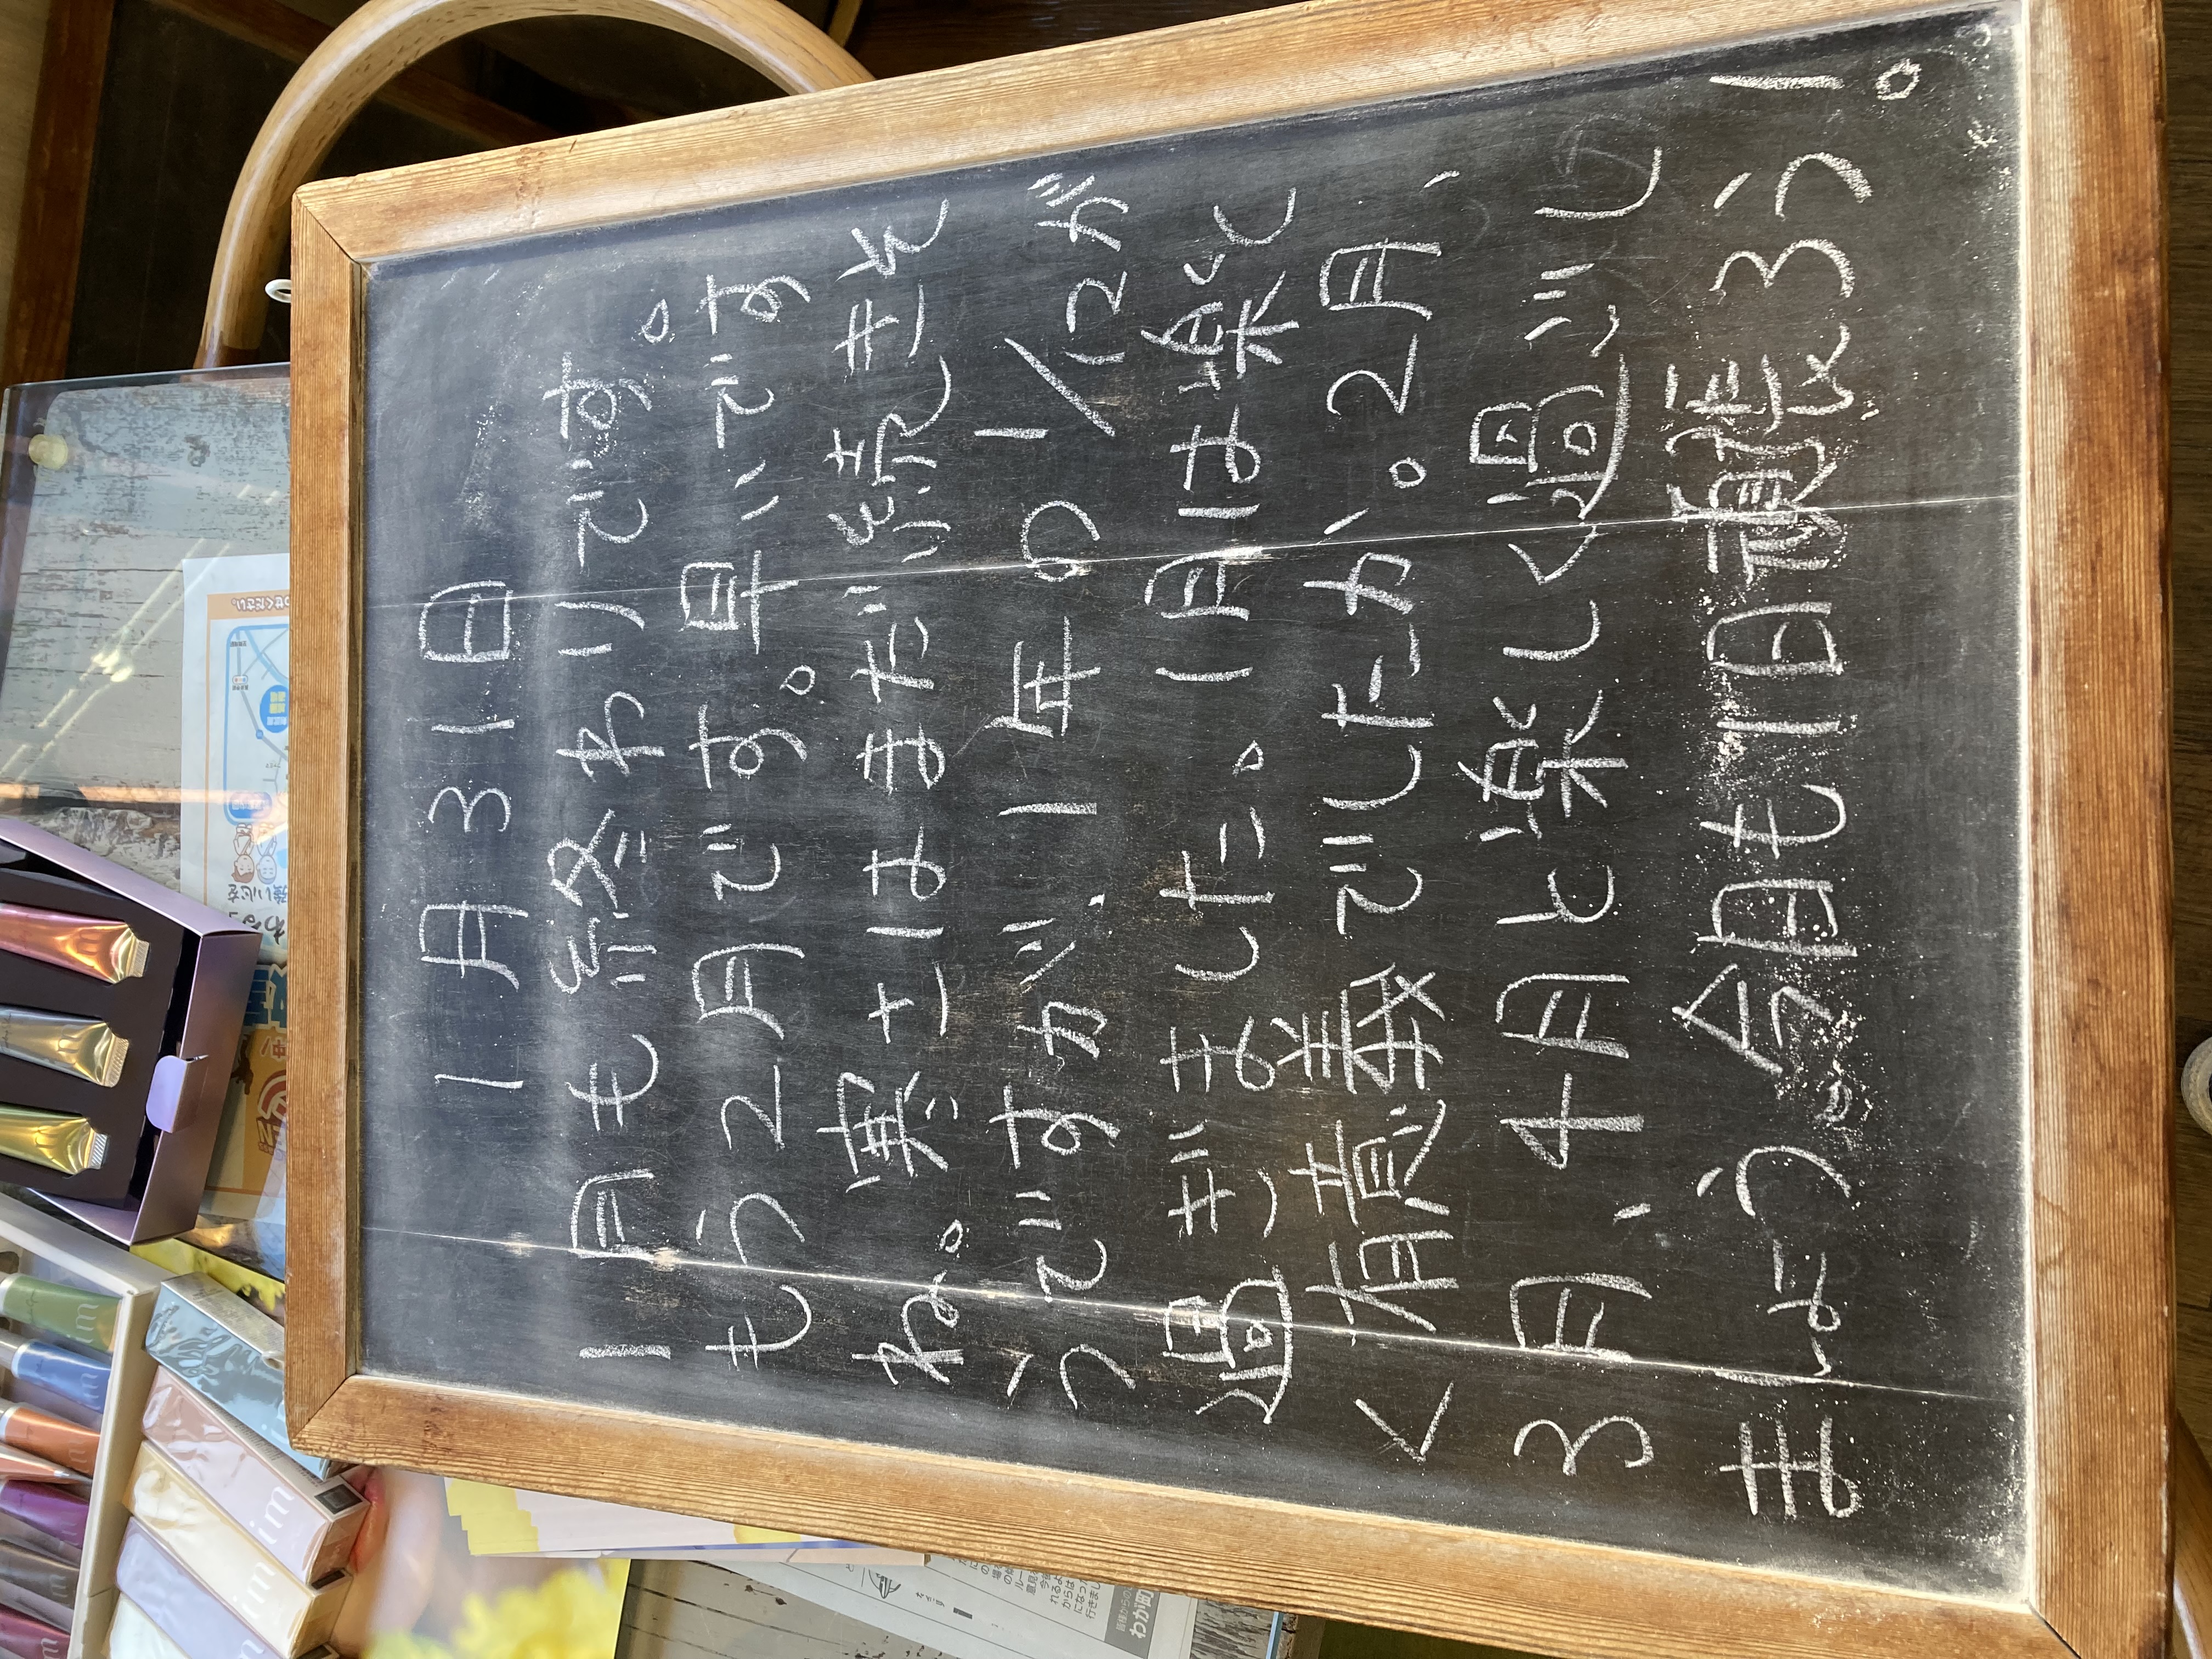 1月31日
1月も終わりです。
もう2月です。早いです
ね。寒さはまだ続きそ
うですが、1年の1/12が
過ぎました。1月は楽し
く有意義でしたか。2月、
3月、4月と楽しく過ごし
ましょう。今日も1日頑張ろう！
わが町